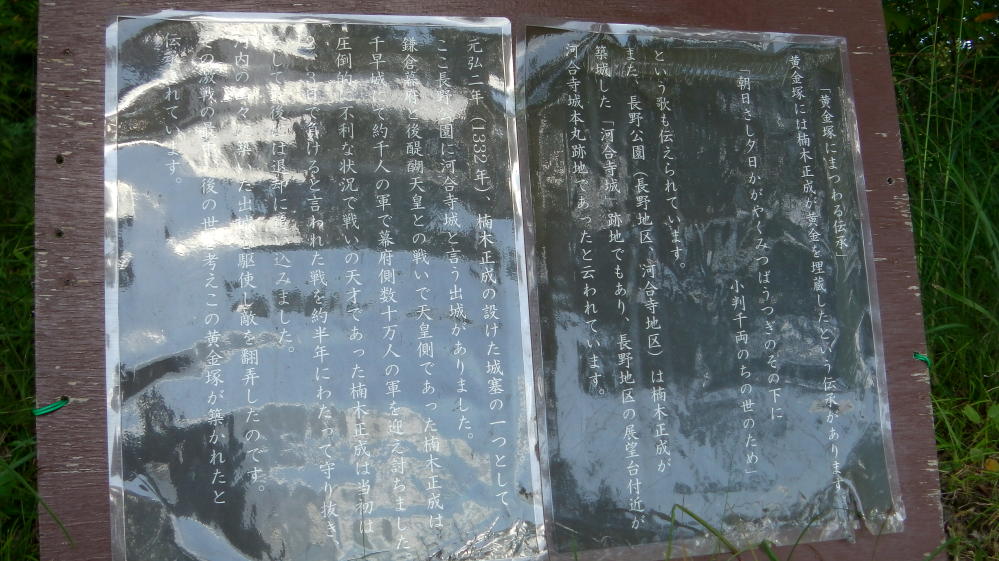 「黄金塚にまつわる伝承」
黄金塚には楠木正成が黄金を埋蔵したという伝承があります
「朝日さし夕日かがやくみつばうつぎのその下に
小判千両のちの世のため」
という歌も伝えられています。
また、長野公園(長野地区、河合寺地区)は楠木正成が
築城した「河合寺城」跡地でもあり、長野地区の展望台付近が
河合寺城本丸跡地であったと云われています。
元弘二年(1332年)、楠木正成の設けた城塞の一つとして
ここ長野公園に河合寺城と言う出城がありました。
鎌倉幕府と後醍醐天皇との戦いで天皇側であった楠木正成は
千早城で約千人の軍で幕府側数十万人の軍を迎え討ちました
圧倒的に不利な状況で戦いの天才であった楠木正成は当初は
2、3日で負けると言われた戦を約半年にわたって守り抜き
して 後には退却に 込みました。
内の 々に築いた出城を駆使し敵を翻弄したのです。
の激戦の 後の世を考えこの黄金塚が築かれたと
伝えられています。